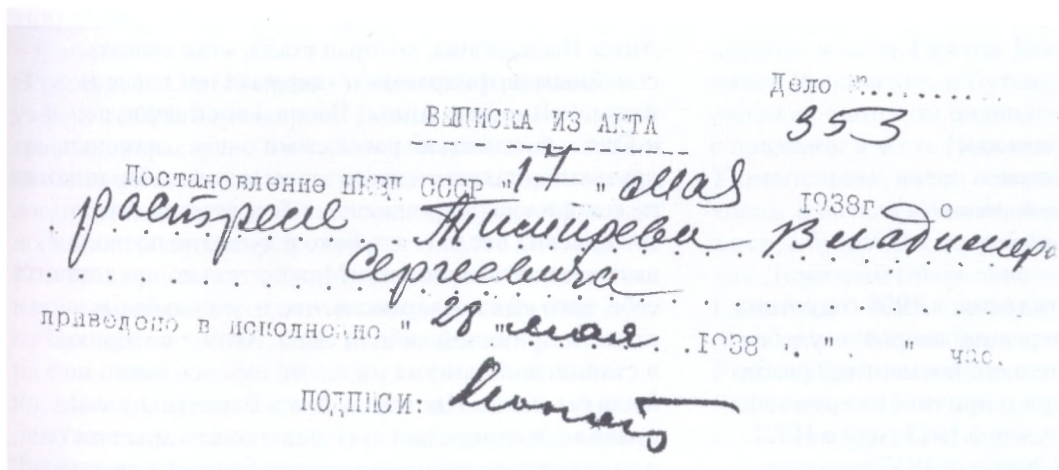 Дело №
ВЫПИСКА ИЗ АКТА 353
Постановление НКВД СССР "17" мая 1938г. о
расстреле Тимирева Владимира
Сергеевича
приведено в исполнение "28" мая 1938 " " час.
ПОДПИСИ: